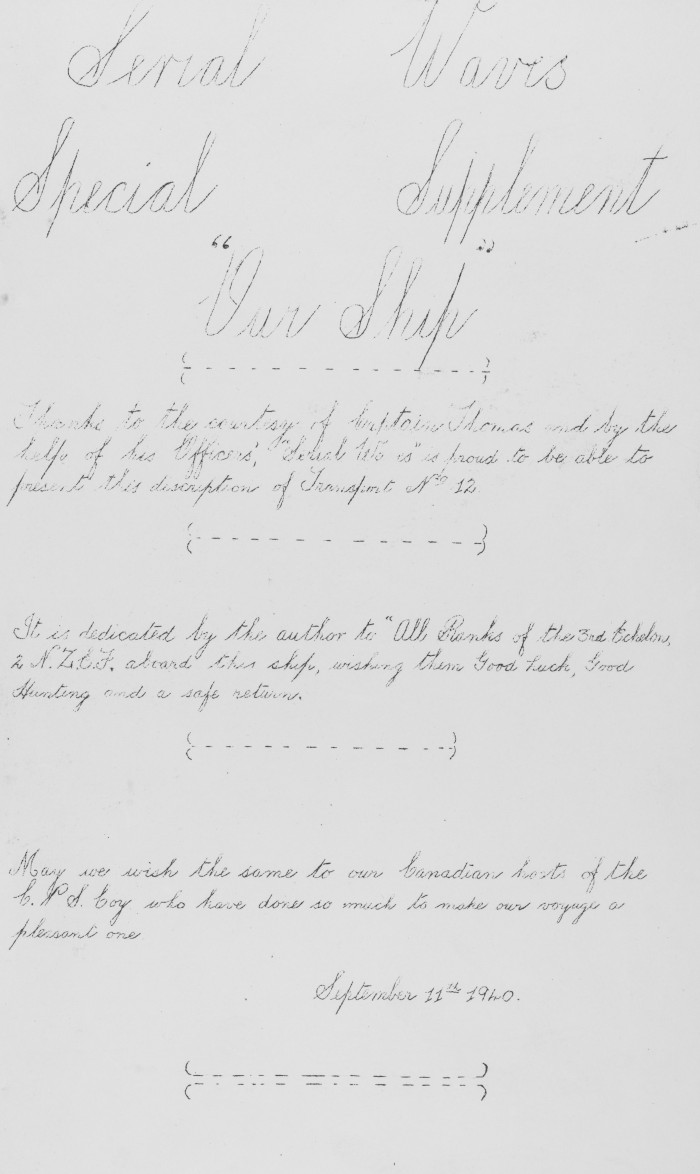 Serial Waves
Special Supplement
"Our Ship"
Thanks to the courtesy of Captain Thomas and by the
help of his Officers', "Serial Wa es" is proud to be able to
present this description of Transport Nº 12.
It is dedicated by the author to "All Ranks of the 3rd Echelon,
2 N.Z.E.F. aboard this ship, wishing them Good Luck, Good
Hunting and a safe return.
May we wish the same to our Canadian hosts of the
C.P.S. Coy who have done so much to make our voyage a
pleasant one
September 11th 1940.